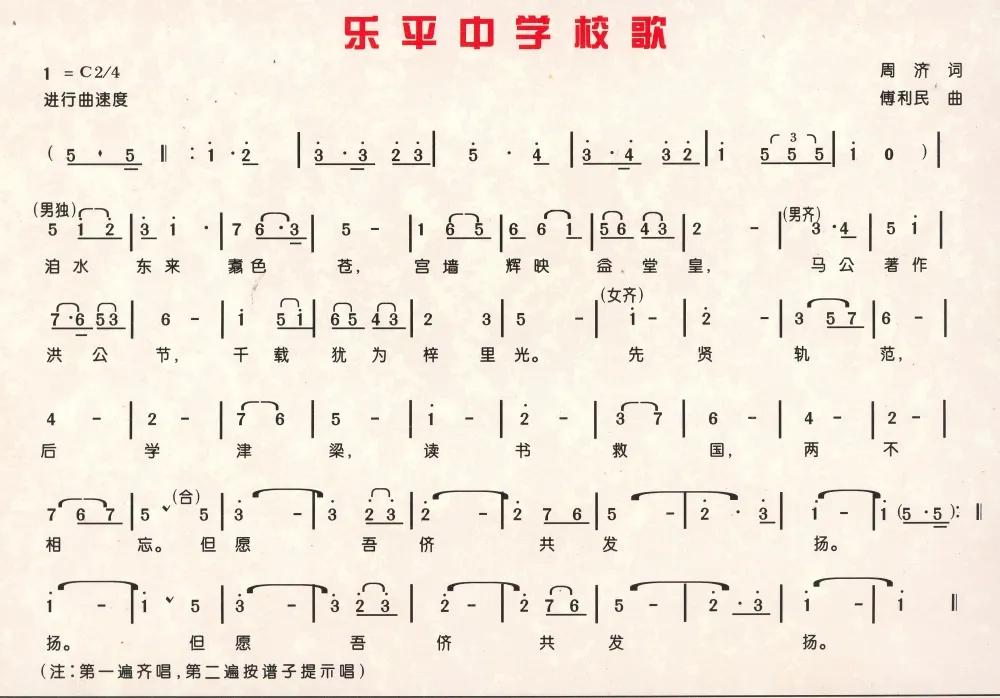 乐平中学校歌
1 = C 2/4
周 济 词
进行曲速度
傅利民 曲
( 5 · 5 ‖ : 1 · 2 | 3 · 3 2 3 | 5 · 4 | 3 · 4 3 2 | 1 5 5 5 | 1 0 ) |
3
(男独)
(男齐)
5 1 2 | 3 1 · | 7 6 · 3 | 5 - | 1 6 5 | 6 6 1 | 5 6 4 3 | 2 - | 3 · 4 | 5 1 |
洎水 东来 翥色 苍, 宫墙 辉映 益堂皇, 马公著作
(女齐)
7 · 6 5 3 | 6 - | 1 5 1 | 6 5 4 3 | 2 3 | 5 - | 1 - | 2 - | 3 5 7 | 6 - |
洪公 节, 千载 犹为 梓里光。 先 贤 轨 范,
4 - | 2 - | 7 6 | 5 - | 1 - | 2 - | 3 7 | 6 - | 4 - | 2 - |
后 学 津 梁, 读 书 救 国, 两 不
(合)
7 6 7 | 5 5 | 3 - | 3 2 3 | 2 - | 2 7 6 | 5 - | 2 · 3 | 1 - | 1 (5 · 5) : ‖
相 忘。 但愿 吾 侪 共 发 扬。
1 - | 1 5 | 3 - | 3 2 3 | 2 - | 2 7 6 | 5 - | 2 · 3 | 1 - | 1 ‖
扬。 但愿 吾 侪 共 发 扬。
(注:第一遍齐唱,第二遍按谱子提示唱)